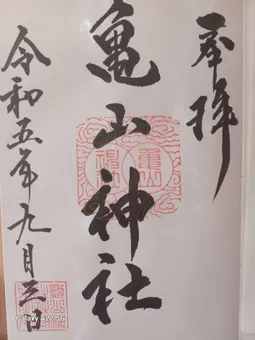 奉拝
亀山神社
令和五年九月三日
Galaxy A25 5G